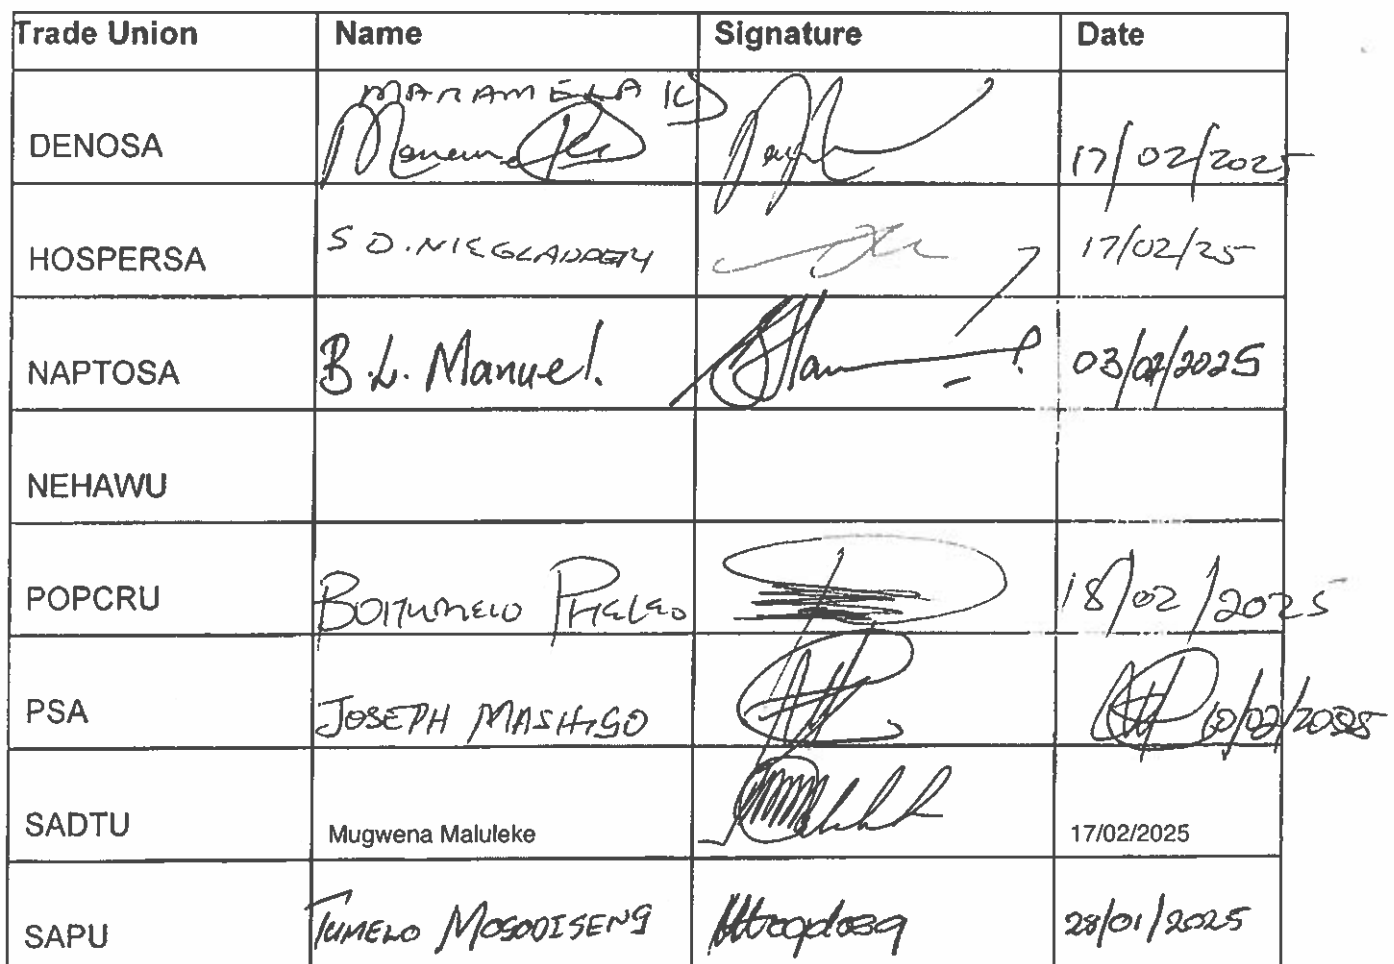 Trade Union Name Signature Date
MARAMELA K
DENOSA 17/02/2025
HOSPERSA S D. 17/02/25
NAPTOSA B.L. Manuel. 03/02/2025
NEHAWU
POPCRU BOITUMELO PHELEO 18/02/2025
PSA JOSEPH MASHIGO
SADTU Mugwena Maluleke 17/02/2025
SAPU TUMELO MOGODISENG 28/01/2025